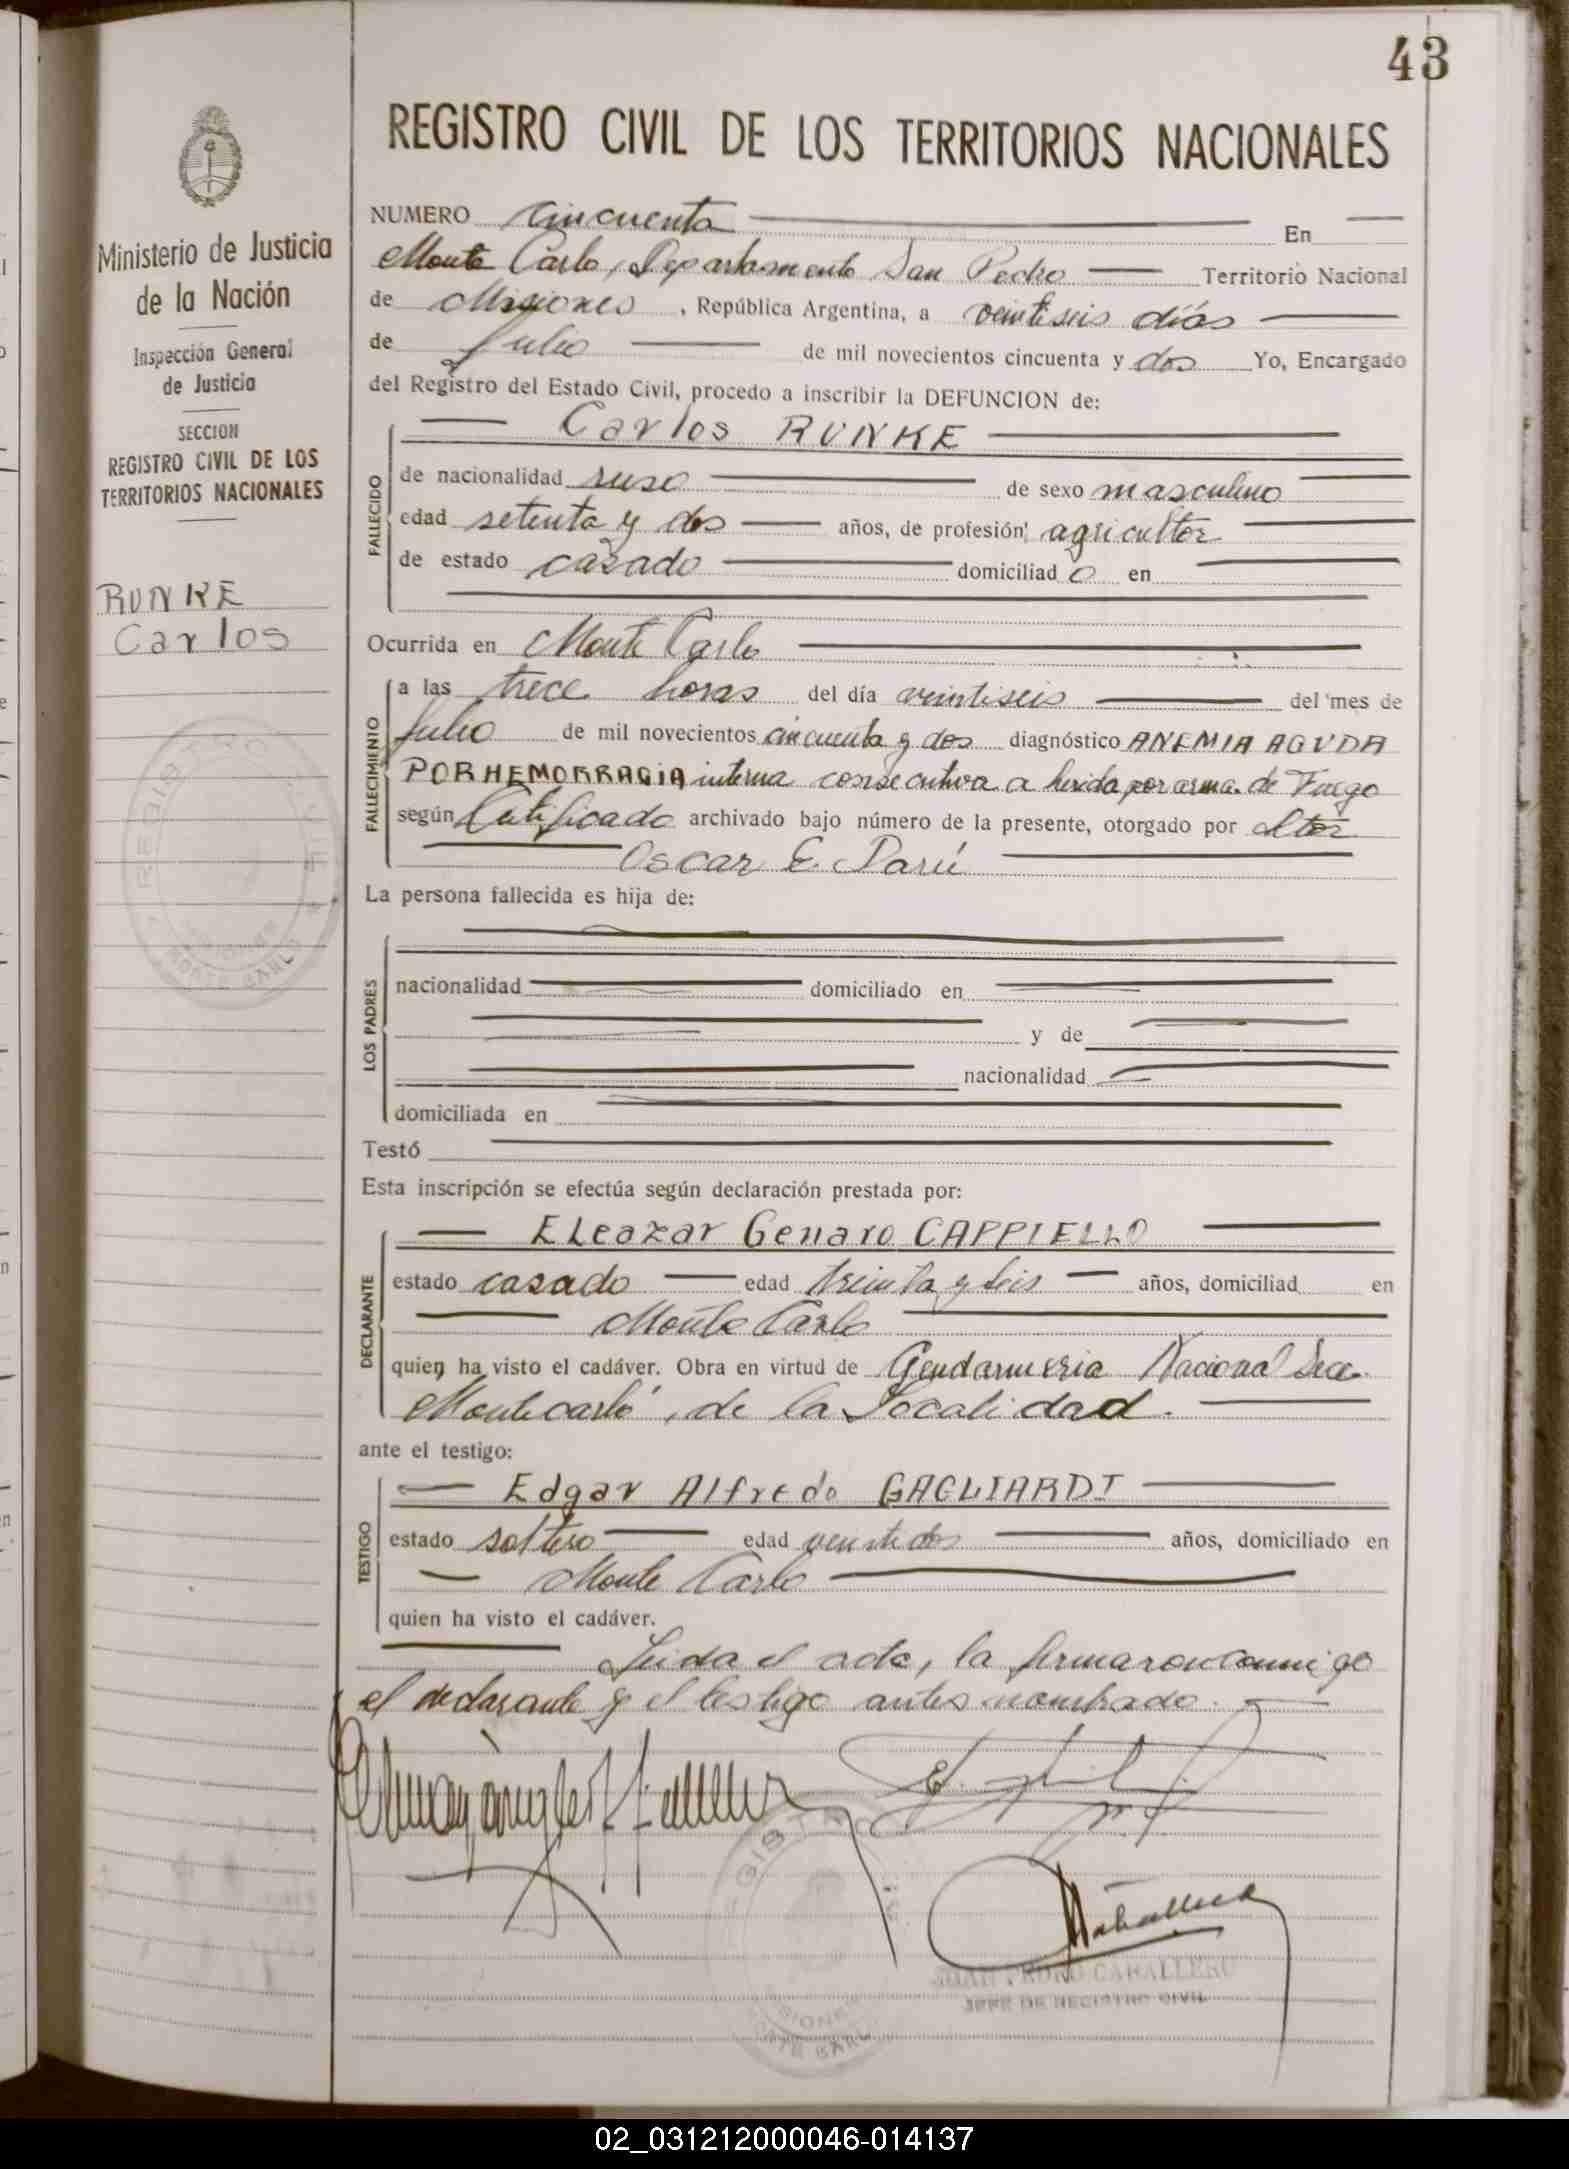 43
REGISTRO CIVIL DE LOS TERRITORIOS NACIONALES
Ministerio de Justicia
de la Nación
Inspección General
de Justicia
SECCION
REGISTRO CIVIL DE LOS
TERRITORIOS NACIONALES
RUNKE
Carlos
NUMERO cincuenta En
Monte Carlo, Departamento San Pedro Territorio Nacional
de Misiones, República Argentina, a veintiseis días
de Julio de mil novecientos cincuenta y dos Yo, Encargado
del Registro del Estado Civil, procedo a inscribir la DEFUNCION de:
Carlos RUNKE
FALLECIDO
de nacionalidad ruso de sexo masculino
edad setenta y dos años, de profesión agricultor
de estado casado domiciliado en
Ocurrida en Monte Carlo
FALLECIMIENTO
a las trece horas del día veintiseis del mes de
Julio de mil novecientos cincuenta y dos diagnóstico ANEMIA AGUDA
POR HEMORRAGIA interna consecutiva a herida por arma de Fuego
según Certificado archivado bajo número de la presente, otorgado por
Oscar E. Darú
La persona fallecida es hija de:
LOS PADRES
nacionalidad domiciliado en
y de
nacionalidad
domiciliada en
Testó
Esta inscripción se efectúa según declaración prestada por:
DECLARANTE
Eleazar Genaro CAPPIELLO
estado casado edad treinta y seis años, domiciliad en
Monte Carlo
quien ha visto el cadáver. Obra en virtud de Gendarmeria Nacional Secc.
Montecarlo, de la Localidad.
ante el testigo:
TESTIGO
Edgar Alfredo GAGLIARDI
estado soltero edad veintidos años, domiciliado en
Monte Carlo
quien ha visto el cadáver.
Leida el acta, la firmaron conmigo
el declarante y el testigo antes nombrado.
REGISTRO CIVIL
MISIONES
MONTE CARLO
JUAN PEDRO CABALLERO
JEFE DE REGISTRO CIVIL
02_031212000046-014137